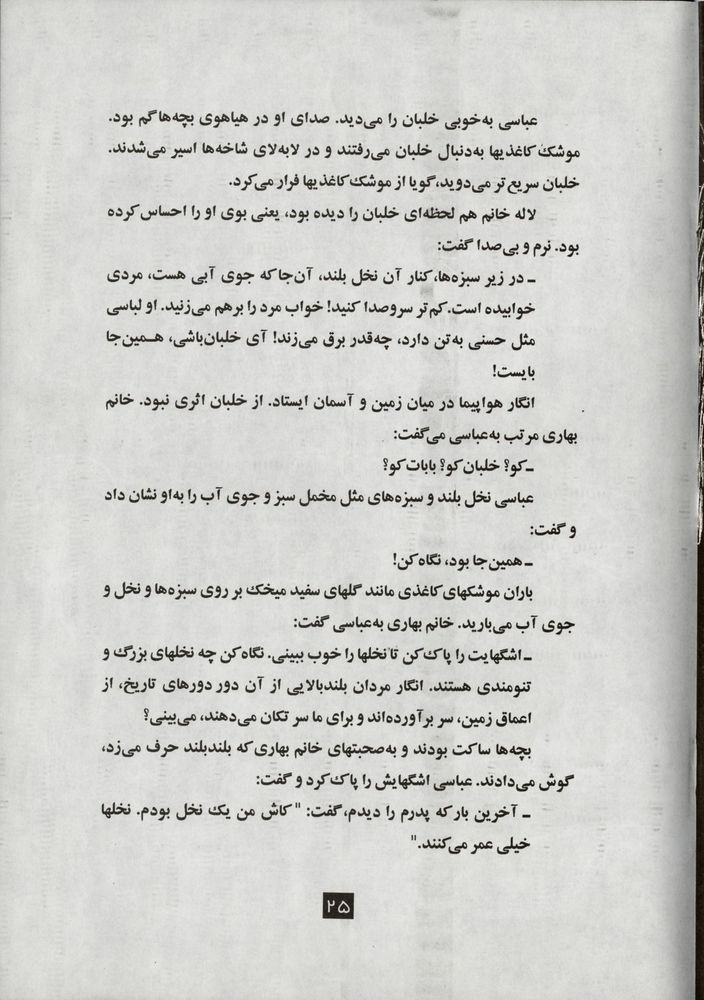 عباسی به‌خوبی خلبان را می‌دید. صدای او در هیاهوی بچه‌ها گم بود.
موشک کاغذیها به‌دنبال خلبان می‌رفتند و در لابه‌لای شاخه‌ها اسیر می‌شدند.
خلبان سریع تر می‌دوید، گویا از موشک کاغذیها فرار می‌کرد.
لاله خانم هم لحظه‌ای خلبان را دیده بود، یعنی بوی او را احساس کرده
بود. نرم و بی‌صدا گفت:
ـ در زیر سبزه‌ها، کنار آن نخل بلند، آن‌جا که جوی آبی هست، مردی
خوابیده است. کم‌تر سروصدا کنید! خواب مرد را برهم می‌زنید. او لباسی
مثل حسنی به‌تن دارد، چه‌قدر برق می‌زند! آی خلبان‌باشی، هـمین‌جا
بایست!
انگار هواپیما در میان زمین و آسمان ایستاد. از خلبان اثری نبود. خانم
بهاری مرتب به‌عباسی می‌گفت:
ـ کو؟ خلبان کو؟ بابات کو؟
عباسی نخل بلند و سبزه‌های مثل مخمل سبز و جوی آب را به‌او نشان داد
و گفت:
ـ همین‌جا بود، نگاه کن!
باران موشکهای کاغذی مانند گلهای سفید میخک بر روی سبزه‌ها و نخل و
جوی آب می‌بارید. خانم بهاری به‌عباسی گفت:
ـ اشگهایت را پاک کن تا نخلها را خوب ببینی. نگاه کن چه نخلهای بزرگ و
تنومندی هستند. انگار مردان بلندبالایی از آن دور دورهای تاریخ، از
اعماق زمین، سر برآورده‌اند و برای ما سر تکان می‌دهند، می‌بینی؟
بچه‌ها ساکت بودند و به‌صحبتهای خانم بهاری که بلندبلند حرف می‌زد،
گوش می‌دادند. عباسی اشگهایش را پاک کرد و گفت:
ـ آخرین بار که پدرم را دیدم، گفت: "کاش من یک نخل بودم. نخلها
خیلی عمر می‌کنند."
۲۵